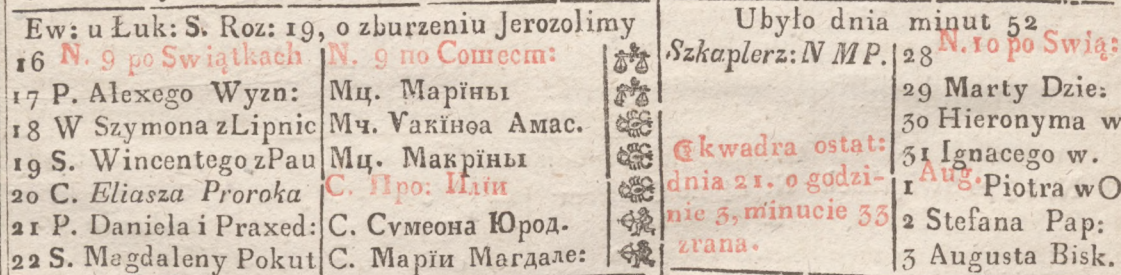 Ew: u Łuk: S. Roz: 19, o zburzeniu Jerozolimy Ubyło dnia minut 52
16 N. 9 po Swiątkach N. 9 по Сошест: Szkaplerz: N M P. 28 N. 10 po Swią:
17 P. Alexego Wyzn: Мц. Марїны 29 Marty Dzie:
18 W Szymona z Lipnic Мч. Ѵакїнѳа Амас. 30 Hieronyma w
19 S. Wincentego z Pau Мц. Макрїны kwadra ostat: 31 Ignacego w.
20 C. Eliasza Proroka С. Про: Илїи dnia 21. o godzi- 1 Aug. Piotra w O
21 P. Daniela i Praxed: С. Сѵмеона Юрод. nie 3, minucie 33 2 Stefana Pap:
22 S. Magdaleny Pokut С. Марїи Магдале: zrana. 3 Augusta Bisk.